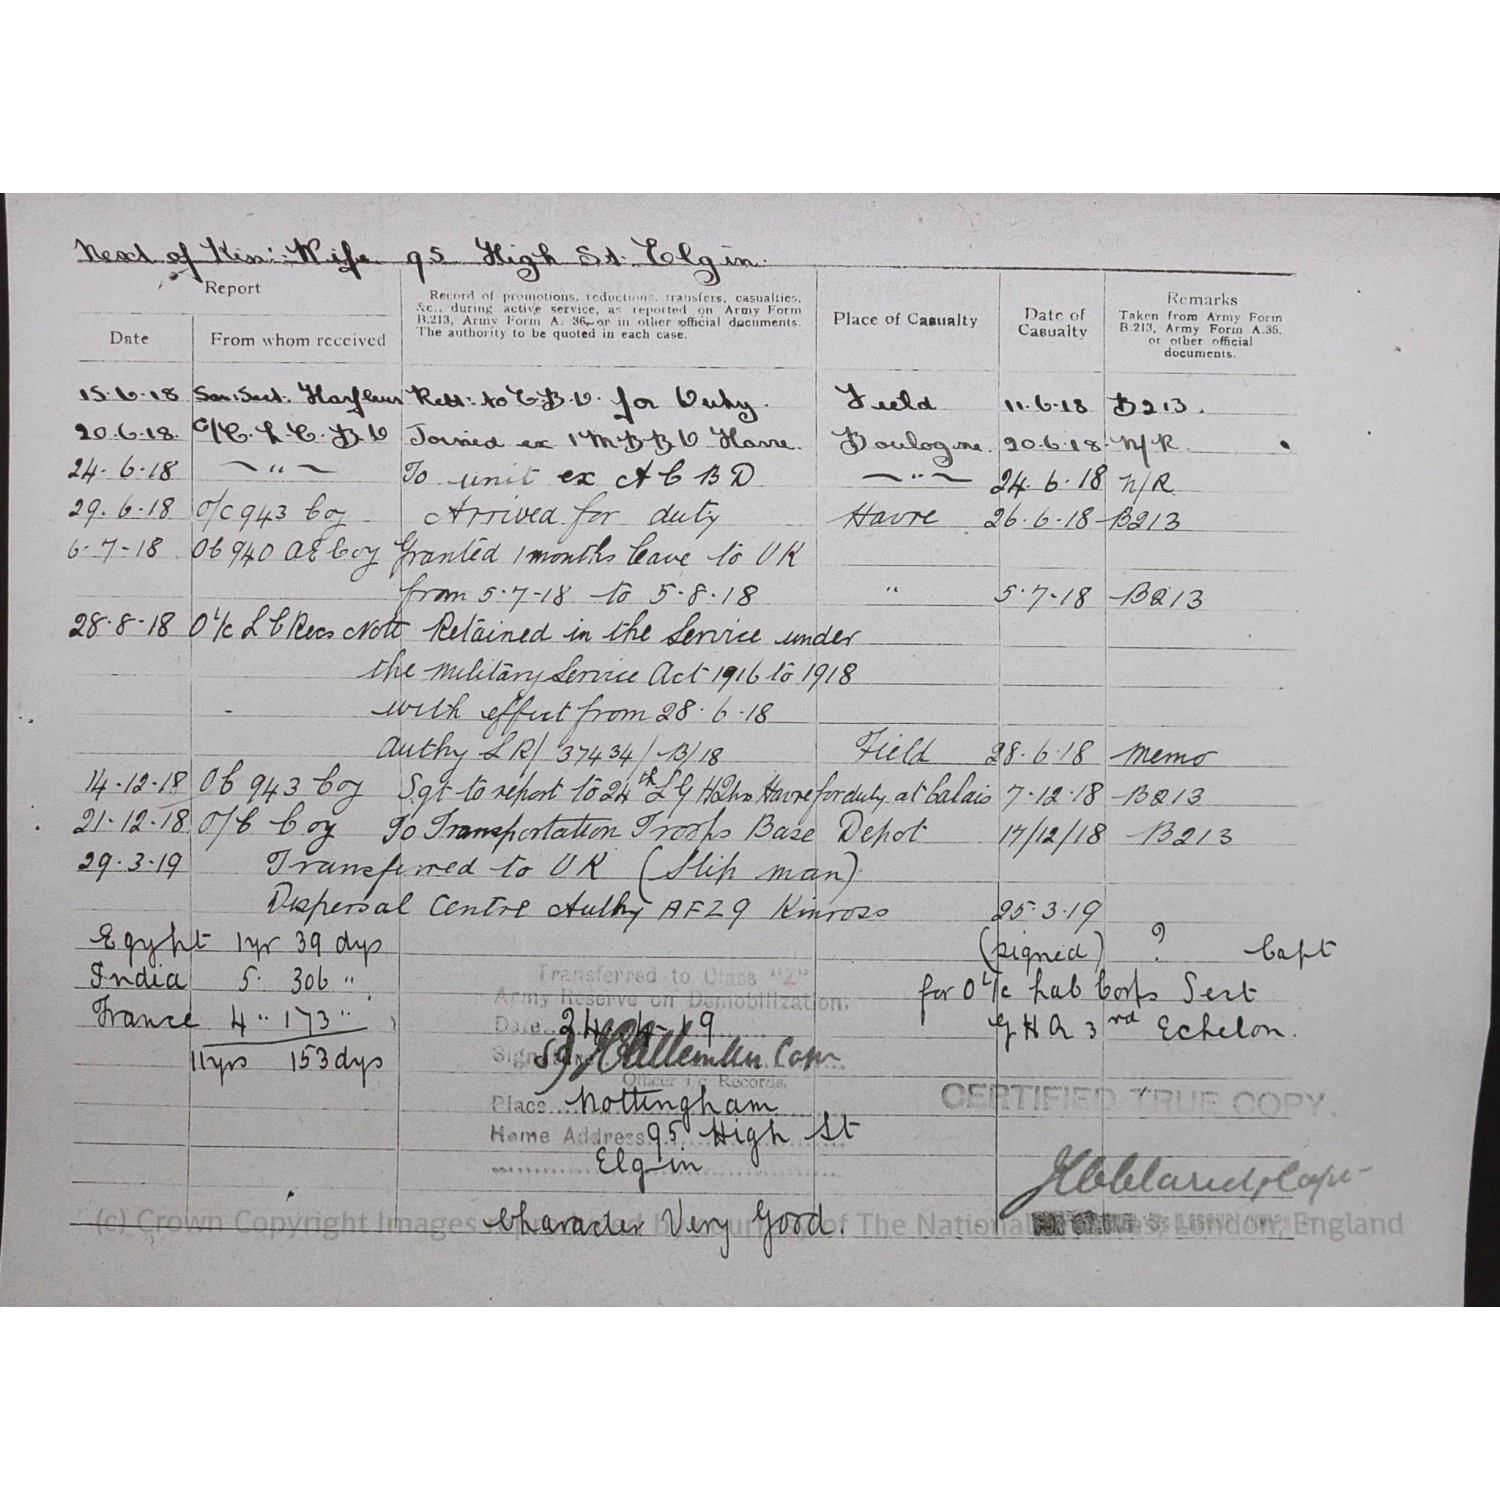 Next of Kin:- Wife. 95 High St. Elgin.
Report
Date
From whom received
Record of promotions, reductions, transfers, casualties,
&c., during active service, as reported on Army Form
B.213, Army Form A. 36, or in other official documents.
The authority to be quoted in each case.
Place of Casualty
Date of
Casualty
Remarks
Taken from Army Form
B.213, Army Form A.36,
or other official
documents.
15.6.18 San: Sect: Harfleur Retd: to C.B.D. for Duty. Field 11.6.18 B213.
20.6.18. O/C. L. C. B. D Joined ex 1 M.B.B.D Havre. Boulogne. 20.6.18. N/R.
24.6.18 — " — To unit ex A C B D — " — 24.6.18 N/R
29.6.18 O/C 943 Coy Arrived for duty Havre 26.6.18 B213
6-7-18 OC 940 AE Coy Granted 1 months leave to UK
from 5.7-18 to 5-8-18 " 5.7-18 B213
28-8-18 O i/c L C Recs Nott Retained in the Service under
the Military Service Act 1916 to 1918
with effect from 28.6.18
Authy LR/ 37434/-B/18 Field 28.6.18 Memo
14-12-18 OC 943 Coy Sgt to report to 24th L G H2rs Havre for duty at Calais 7-12-18 B213
21-12-18 O/C Coy To Transportation Troops Base Depot 17/12/18 B213
29.3-19 Transferred to UK (Slip man)
Dispersal Centre Authy AFZ9 Kinross 25.3.19
Egypt 1yr 39 dys (signed) ? Capt
India 5. 306 " for O i/c Lab Corps Sect
France 4 " 173 " G H Q 3rd Echelon.
11yrs 153dys
Transferred to Class "Z"
Army Reserve on Demobilization.
Date 24-4-19
Signature
Officer i/c Records.
Place Nottingham
Home Address 95 High St
Elgin
Character Very Good.
CERTIFIED TRUE COPY.
Capt
(c) Crown Copyright Images of The National London, England